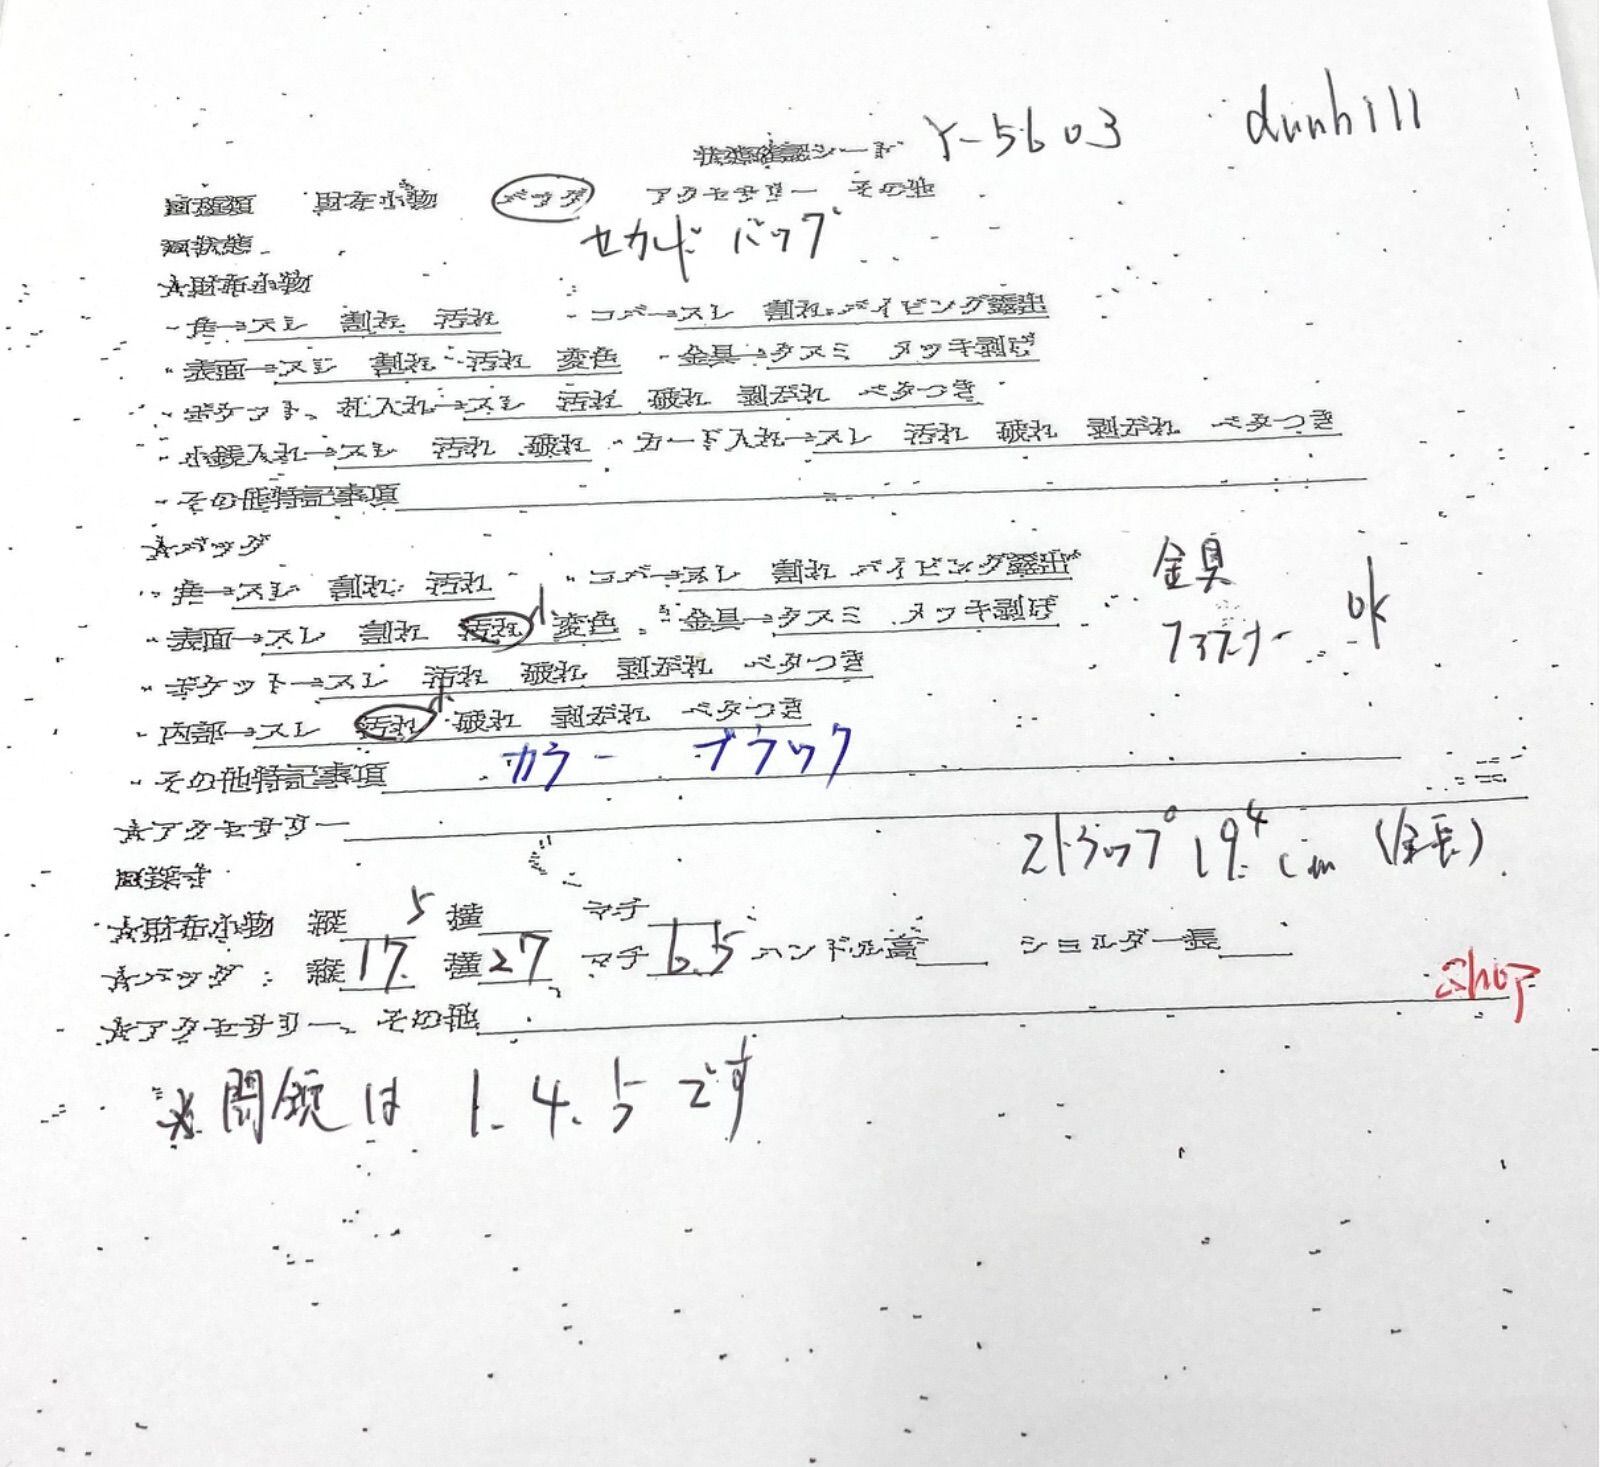 状態確認シート Y-5603 dunhill
回種類 財布小物 バッグ アクセサリー その他
回状態 セカンドバッグ
☆財布小物
・角→スレ 割れ 汚れ ・コバ→スレ 割れ パイピング露出
・表面→スレ 割れ 汚れ 変色 ・金具→クスミ メッキ剥げ
・ポケット、札入れ→スレ 汚れ 破れ 剥がれ ベタつき
・小銭入れ→スレ 汚れ 破れ ・カード入れ→スレ 汚れ 破れ 剥がれ ベタつき
・その他特記事項
☆バッグ 金具
・角→スレ 割れ 汚れ ・コバ→スレ 割れ パイピング露出
・表面→スレ 割れ 汚れ 小 変色 ・金具→クスミ メッキ剥げ ファスナー OK
・ポケット→スレ 汚れ 破れ 剥がれ ベタつき
・内部→スレ 汚れ 小 破れ 剥がれ ベタつき
・その他特記事項 カラー ブラック
☆アクセサリー
ストラップ 19.4cm (全長)
回採寸
☆財布小物 縦 横 マチ
☆バッグ 縦17.5 横27 マチ6.5 ハンドル高 ショルダー長
shop
☆アクセサリー、その他
※開錠は 1.4.5です